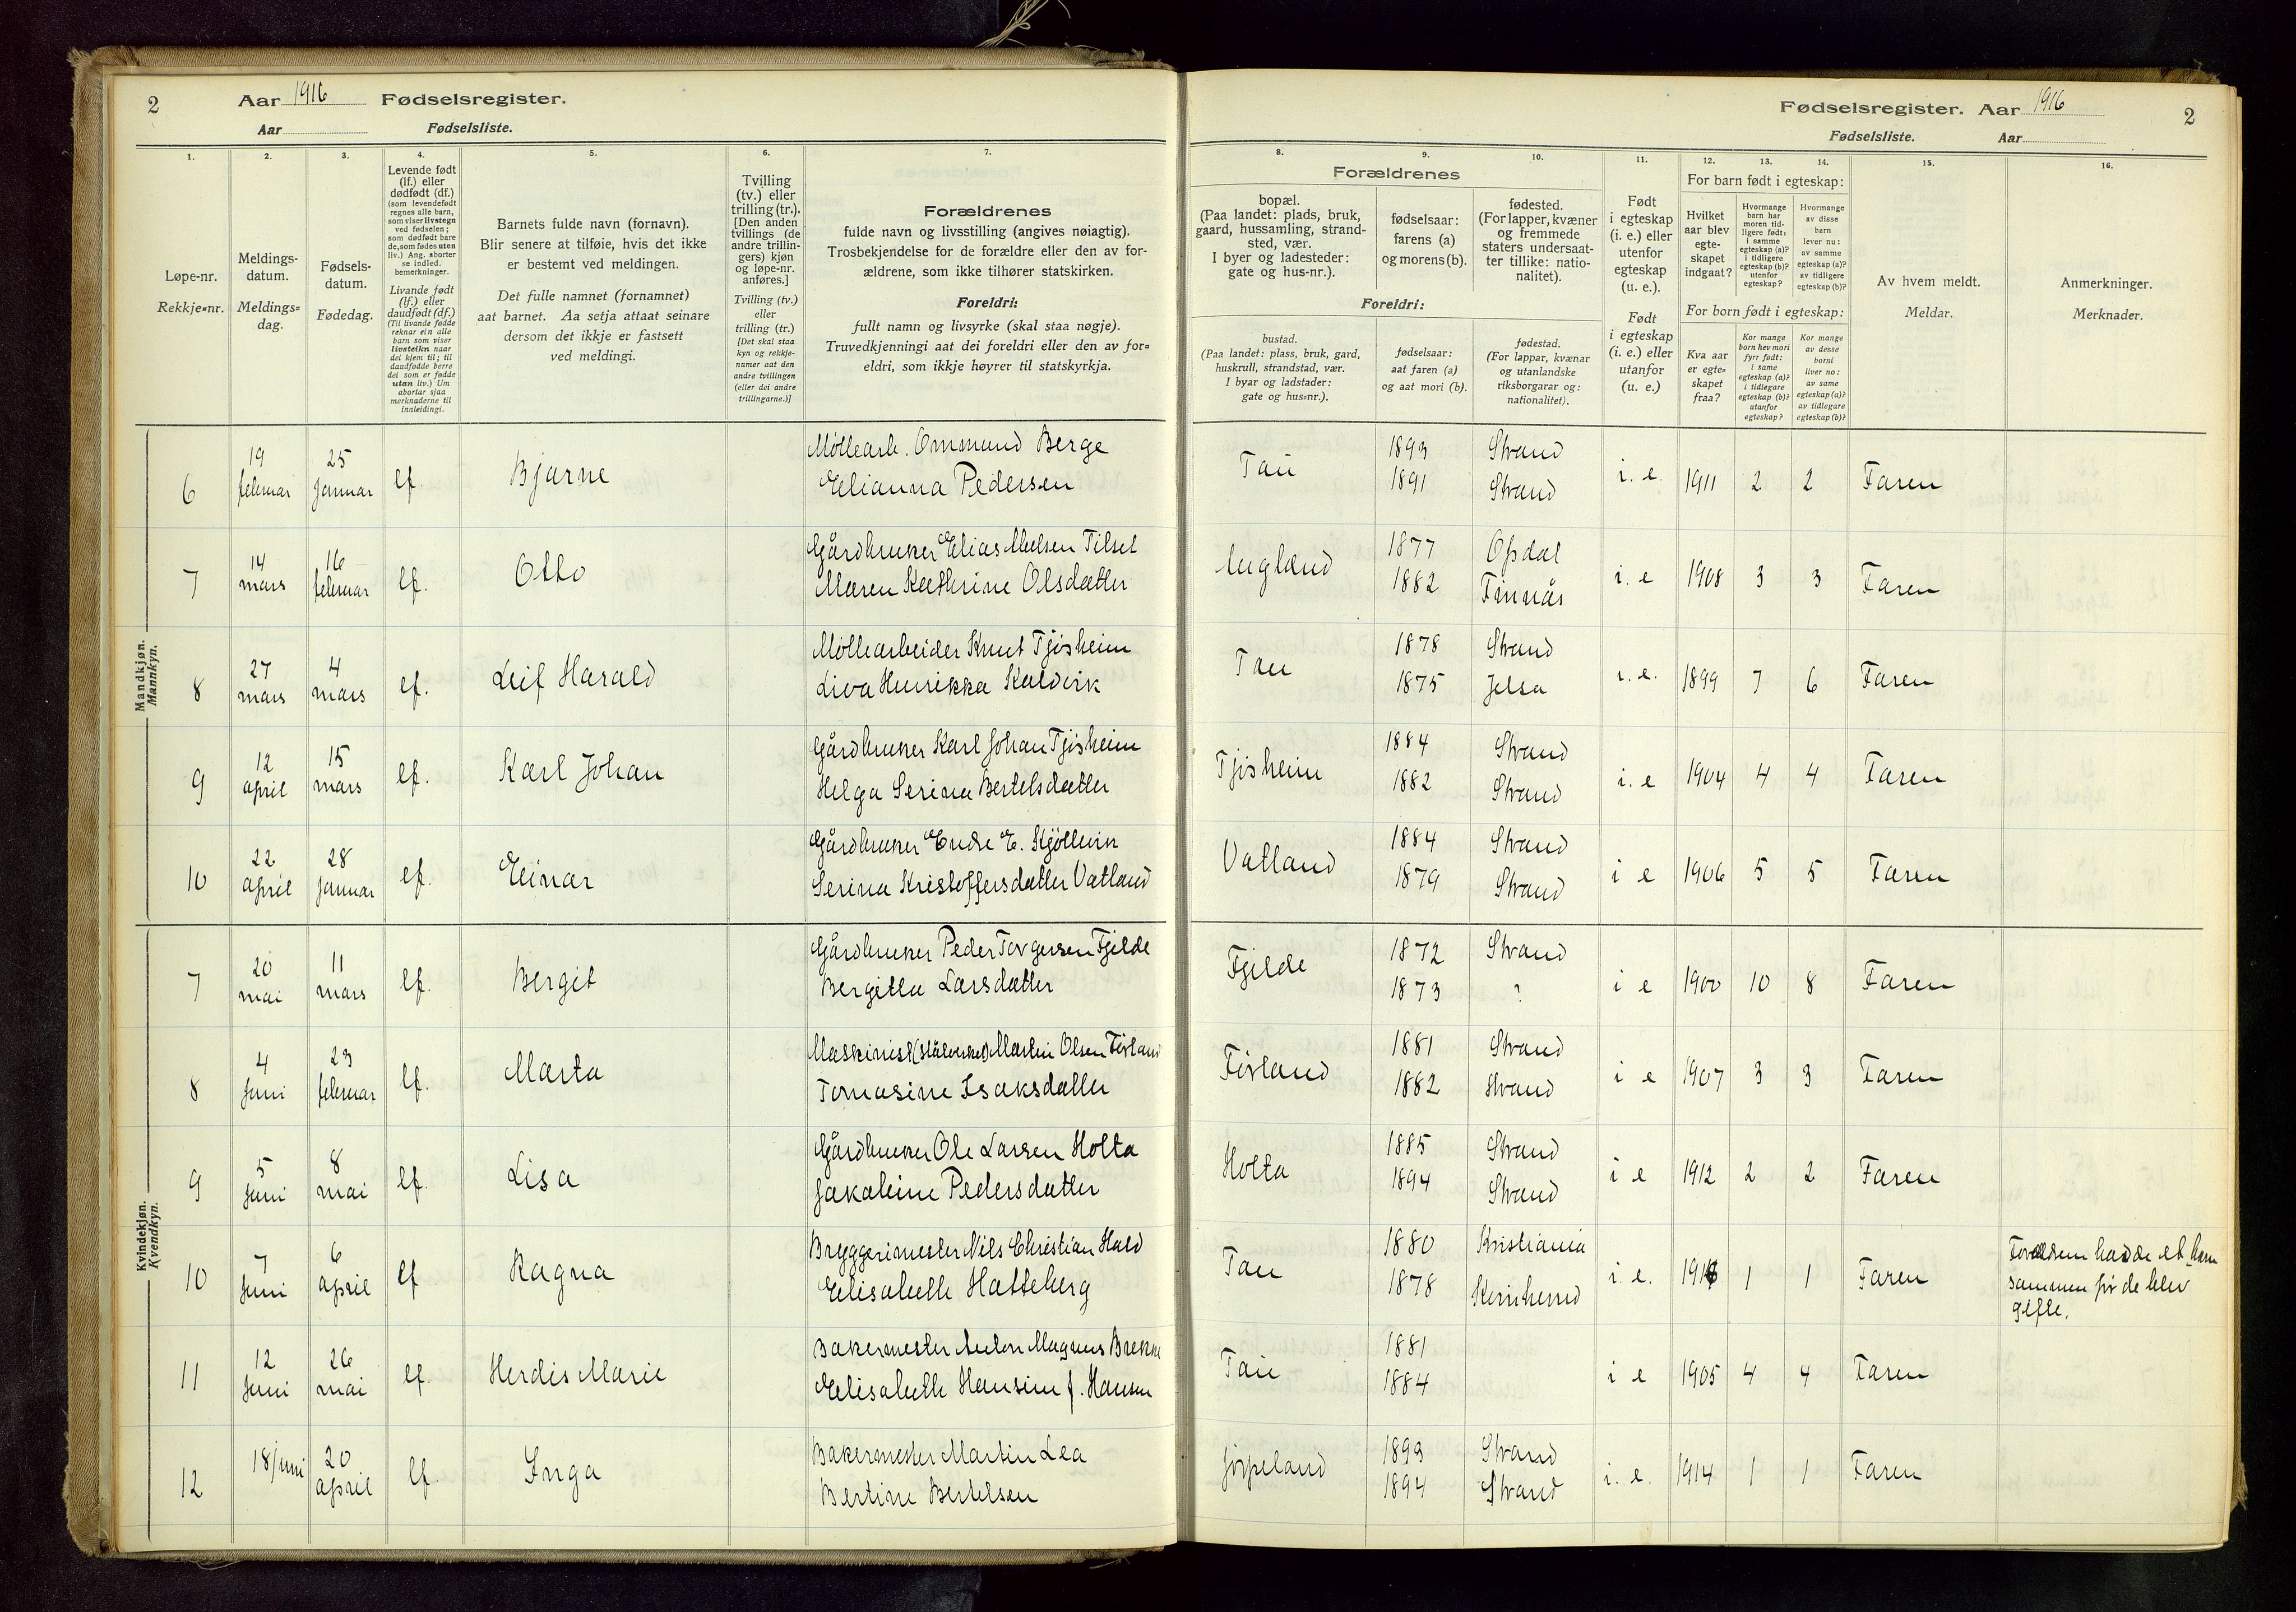 2 Aar 1916 Fødselsregister.
Aar Fødselsliste.
Fødselsregister. Aar 1916 2
Fødselsliste. Aar
1. 2. 3. 4. 5. 6. 7.
Løpe-nr.
Rekkje=nr.
Meldings-
datum.
Meldings=
dag.
Fødsels-
datum.
Fødedag.
Levende født
(lf.) eller
dødfødt (df.)
(som levendefødt
regnes alle barn,
som viser livstegn
ved fødselen;
som dødfødt bare
de, som fødes uten
liv.) Ang. aborter
se indled.
bemerkninger.
Livande født
(lf.) eller
daudfødt (df.)
(Til livande fødde
reknar ein alle
barn som viser
livsteikn naar
dei kjem til; til
daudfødde berre
dei som er fødde
utan liv.) Um
abortar sjaa
merknaderne til
innleidingi.
Barnets fulde navn (fornavn).
Blir senere at tilføie, hvis det ikke
er bestemt ved meldingen.
Det fulle namnet (fornamnet)
aat barnet. Aa setja attaat seinare
dersom det ikkje er fastsett
ved meldingi.
Tvilling
(tv.) eller
trilling (tr.).
[Den anden
tvillings (de
andre trillin-
gers) kjøn
og løpe-nr.
anføres.]
Tvilling (tv.)
eller
trilling (tr.)
[Det skal staa
kyn og rekkje-
numer aat den
andre tvillingen
(eller dei andre
trillingarne.)]
Forældrenes
fulde navn og livsstilling (angives nøiagtig).
Trosbekjendelse for de forældre eller den av for-
ældrene, som ikke tilhører statskirken.
Foreldri:
fullt namn og livsyrke (skal staa nøgje).
Truvedkjenningi aat dei foreldri eller den av for=
eldri, som ikkje høyrer til statskyrkja.
8. 9. 10. 11. 12. 13. 14. 15. 16.
Forældrenes
bopæl.
(Paa landet: plads, bruk,
gaard, hussamling, strand-
sted, vær.
I byer og ladesteder:
gate og hus-nr.).
fødselsaar:
farens (a)
og morens (b).
fødested.
(For lapper, kvæner
og fremmede
staters undersaat-
ter tillike: natio-
nalitet).
Foreldri:
bustad.
(Paa landet: plass, bruk, gard,
huskrull, strandstad, vær.
I byar og ladstader:
gate og hus=nr.).
fødselsaar:
aat faren (a)
og aat mori (b).
fødestad.
(For lappar, kvænar
og utanlandske
riksborgarar og:
nationalitet).
Født
i egteskap
(i. e.) eller
utenfor
egteskap
(u. e.).
Født
i egteskap
(i. e.) eller
utanfor
(u. e.)
For barn født i egteskap:
Hvilket
aar blev
egte-
skapet
indgaat?
Hvormange
barn har
moren tid-
ligere født:
i samme
egteskap (a)?
i tidligere
egteskap (b)?
utenfor
egteskap?
Hvormange
av disse
barn
lever nu:
av samme
egteskap (a)?
av tidligere
egteskap (b)?
For born født i egteskap:
Kva aar
er egte=
skapet
fraa?
Kor mange
born hev mori
fyrr født:
i same
egteskap (a)?
i tidlegare
egteskap (b)?
utanfor
egteskap?
Kor mange
av desse
borni
liver no:
av same
egteskap (a)?
av tidlegare
egteskap (b)?
Av hvem meldt.
Meldar.
Anmerkninger.
Merknader.
Mandkjøn.
Mannkyn.
6 19 februar 25 januar lf. Bjarne Møllearb. Ommund Berge Tau 1893 Strand i. e. 1911 2 2 Faren
Elianna Pedersen 1891 Strand
7 14 mars 16 februar lf. Otto Gårdbruker Elias Nielsen Tilset 1877 Opdal i. e 1908 3 3 Faren
Maren Kathrine Olsdatter 1882 Finnås
8 27 mars 4 mars lf. Leif Harald Møllearbeider Knut Tjøsheim Tau 1878 Strand i. e. 1899 7 6 Faren
1875 Jelsa
9 12 april 15 mars lf. Karl Johan Gårdbruker Karl Johan Tjøsheim Tjøsheim 1884 Strand i. e 1904 4 4 Faren
Helga Serina Bertelsdatter 1882 Strand
10 22 april 28 januar lf. Einar Gårdbruker Endre E. Vatland 1884 Strand i e 1906 5 5 Faren
Serina Kristoffersdatter Vatland 1879 Strand
Kvindekjøn.
Kvendkyn.
7 20 mai 11 mars lf. Bergit Gårdbruker Peder Torgersen Fjelde Fjelde 1872 Strand i e 1900 10 8 Faren
Bergitta Larsdatter 1873 ?
8 4 juni 23 februar lf. Marta Maskinist (stålverket) Martin Olsen Førland Førland 1881 Strand i e 1907 3 3 Faren
Tomasine Isaksdatter 1882 Strand
9 5 juni 8 mai lf. Lisa Gårdbruker Ole Larsen Holta Holta 1885 Strand i e 1912 2 2 Faren
Jakobine Pedersdatter 1894 Strand
10 7 juni 6 april lf Ragna Bryggerimester Nils Christian Hald Tau 1880 Kristiania i. e. 1 1 Faren Forældrene hadde et barn
Elisabeth Hatteberg 1878 Kvinherred sammen før de blev
gifte.
11 12 juni 26 mai lf. Herdis Marie Bakermester Anton Magnus Brekke Tau 1881 i e 1905 4 4 Faren
Elisabeth Hansine f. Hansen 1884
12 18/juni 20 april lf. Inga Bakermester Martin Lea Jørpeland 1893 Strand i. e. 1914 1 1 Faren
Bertine Bertelsen 1894 Strand